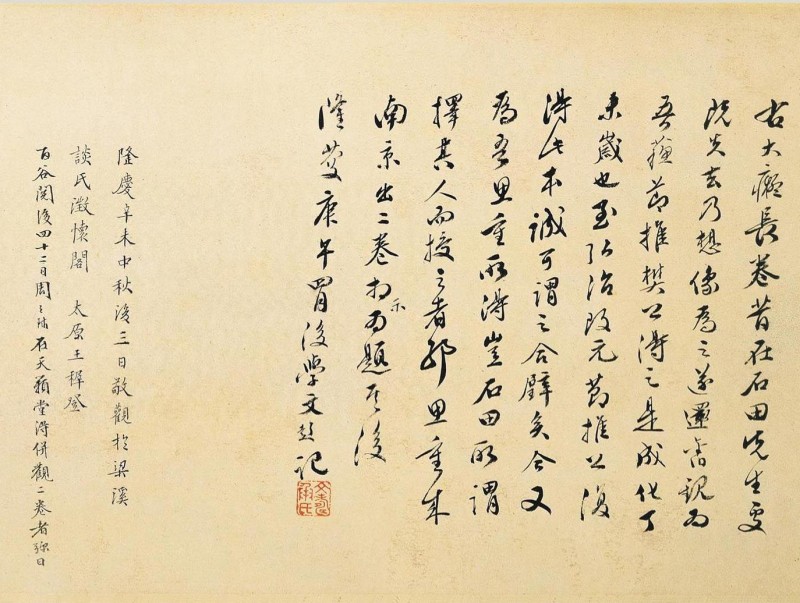 右大癡長卷昔在石田先生處
既失去乃想像為之遂還舊觀為
吾蘇節推樊公得之是成化丁
未歲也至弘治改元節推公復
得此本誠可謂之合璧矣今又
為吾思重所得豈石田所謂
擇其人而授之者耶思重來
南京出二卷相示為題其後
隆慶庚午四月後學文彭記
文壽承氏
隆慶辛未中秋後三日敬觀於梁溪
談氏澂懷閣 太原王穉登
百谷閱後四十二日周天球在天籟堂得併觀二卷者彌日